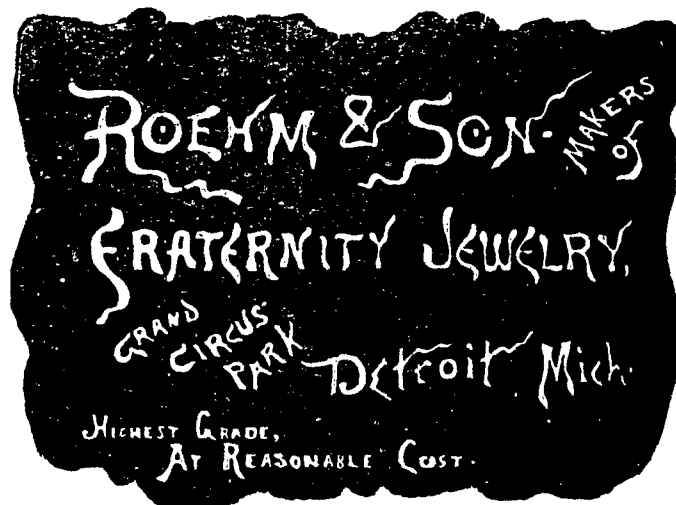 ROEHM & SON. MAKERS OF
FRATERNITY JEWELRY,
GRAND CIRCUS PARK Detroit Mich.
HIGHEST GRADE,
AT REASONABLE COST.